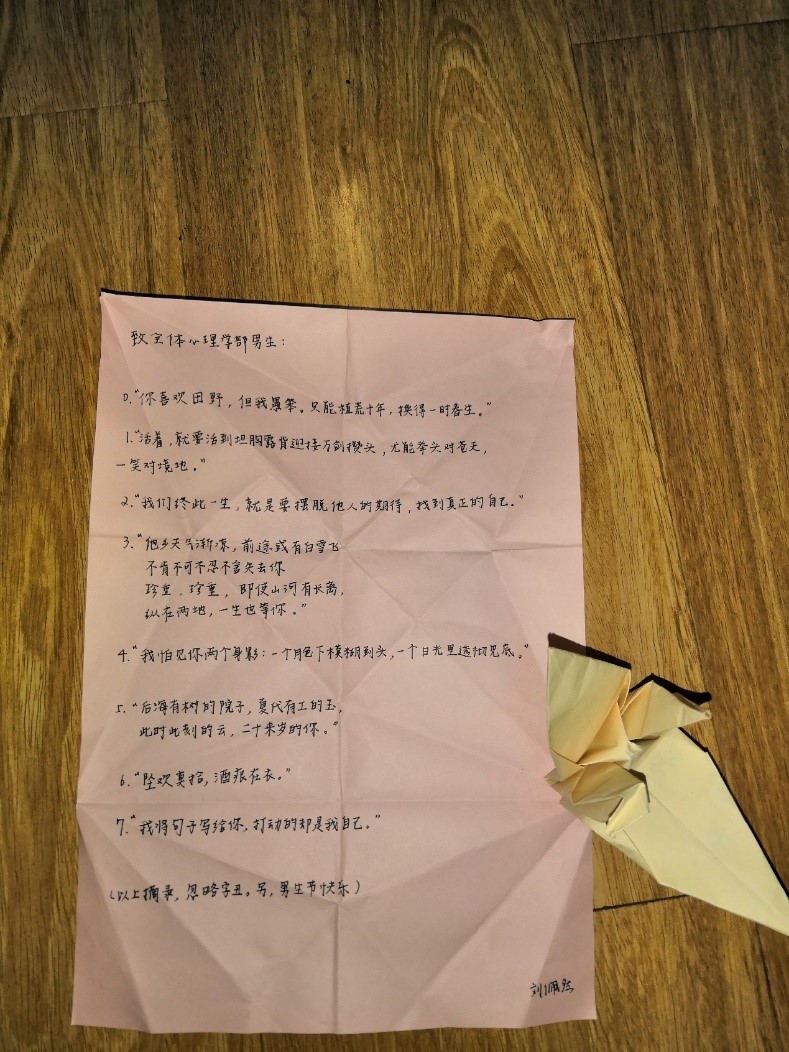 致全体心理学部男生：
0.“你喜欢田野，但我愚笨。只能植荒十年，换得一时春生。”
1.“活着，就要活到坦胸露背迎接万剑攒头，尤能举头对苍天，
一笑对境地。”
2.“我们终此一生，就是要摆脱他人的期待，找到真正的自己。”
3.“他乡天气渐凉，前途或有白雪飞
不肯不可不忍不舍失去你
珍重，珍重，即使山河有长离，
纵在两地，一生也等你。”
4.“我怕见你两个身影：一个月色下模糊到头，一个日光里透彻见底。”
5.“后海有树的院子，夏代有工的玉，
此时此刻的云，二十来岁的你。”
6.“坠欢莫拾，酒痕在衣。”
7.“我将句子写给你，打动的却是我自己。”
（以上摘录，忽略字丑。另，男生节快乐）
刘佩然